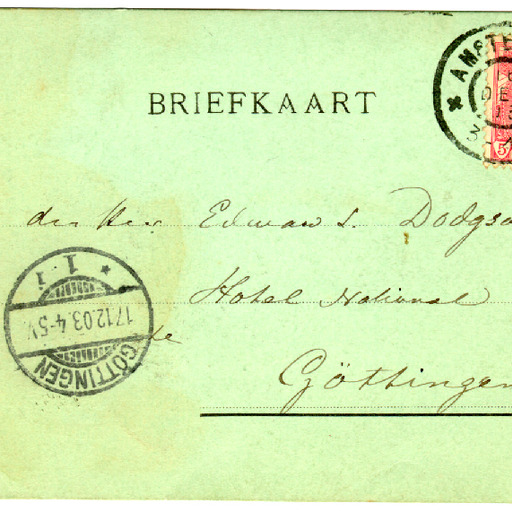 BRIEFKAART
AMSTE
DE
5
den Heer Edward S. Dodgso
Hotel National
te
Göttingen
* 1 i
17.12.03.4-5V.
GÖTTINGEN